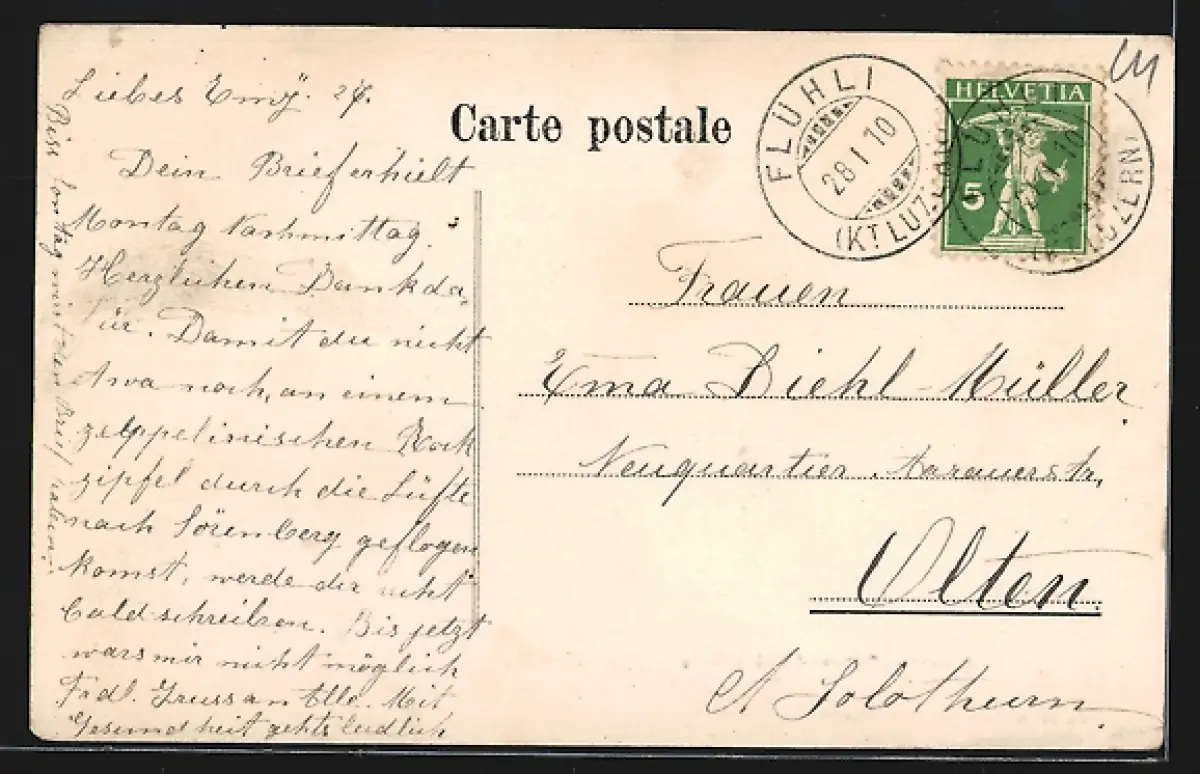 Liebes Emÿ. 27.
Dein Brief erhielt
Montag Nachmittag.
Herzlichen Dank da-
für. Damit du nicht
etwa noch, an einem
zeppelinischen Rock
zipfel durch die Lüfte
nach Sörenberg geflogen
komst, werde dir recht
bald schreiben. Bis jetzt
wars mir nicht möglich
Frdl. Gruss an Alle. Mit
Gesundheit gehts leidlich
Carte postale
FLÜHLI
28 I 10
(KT LUZERN)
HELVETIA
5
Frauen
Ema Diehl-Müller
Neuquartier Aarauerstr,
Olten.
Kt Solothurn.